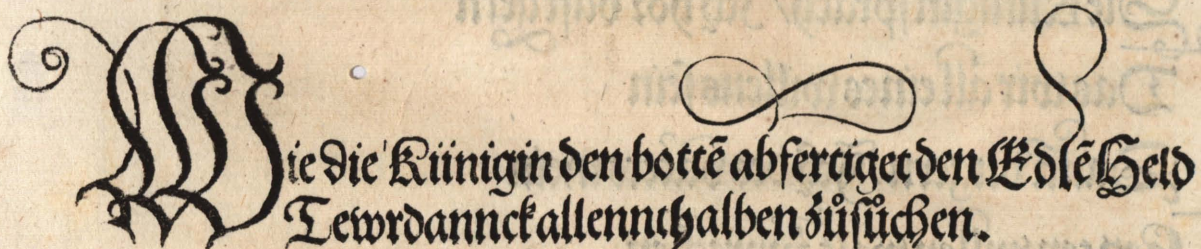 Wie die Künigin den bottē abfertiget den Edlē Held
Tewrdannck allennthalben zůsůchen.